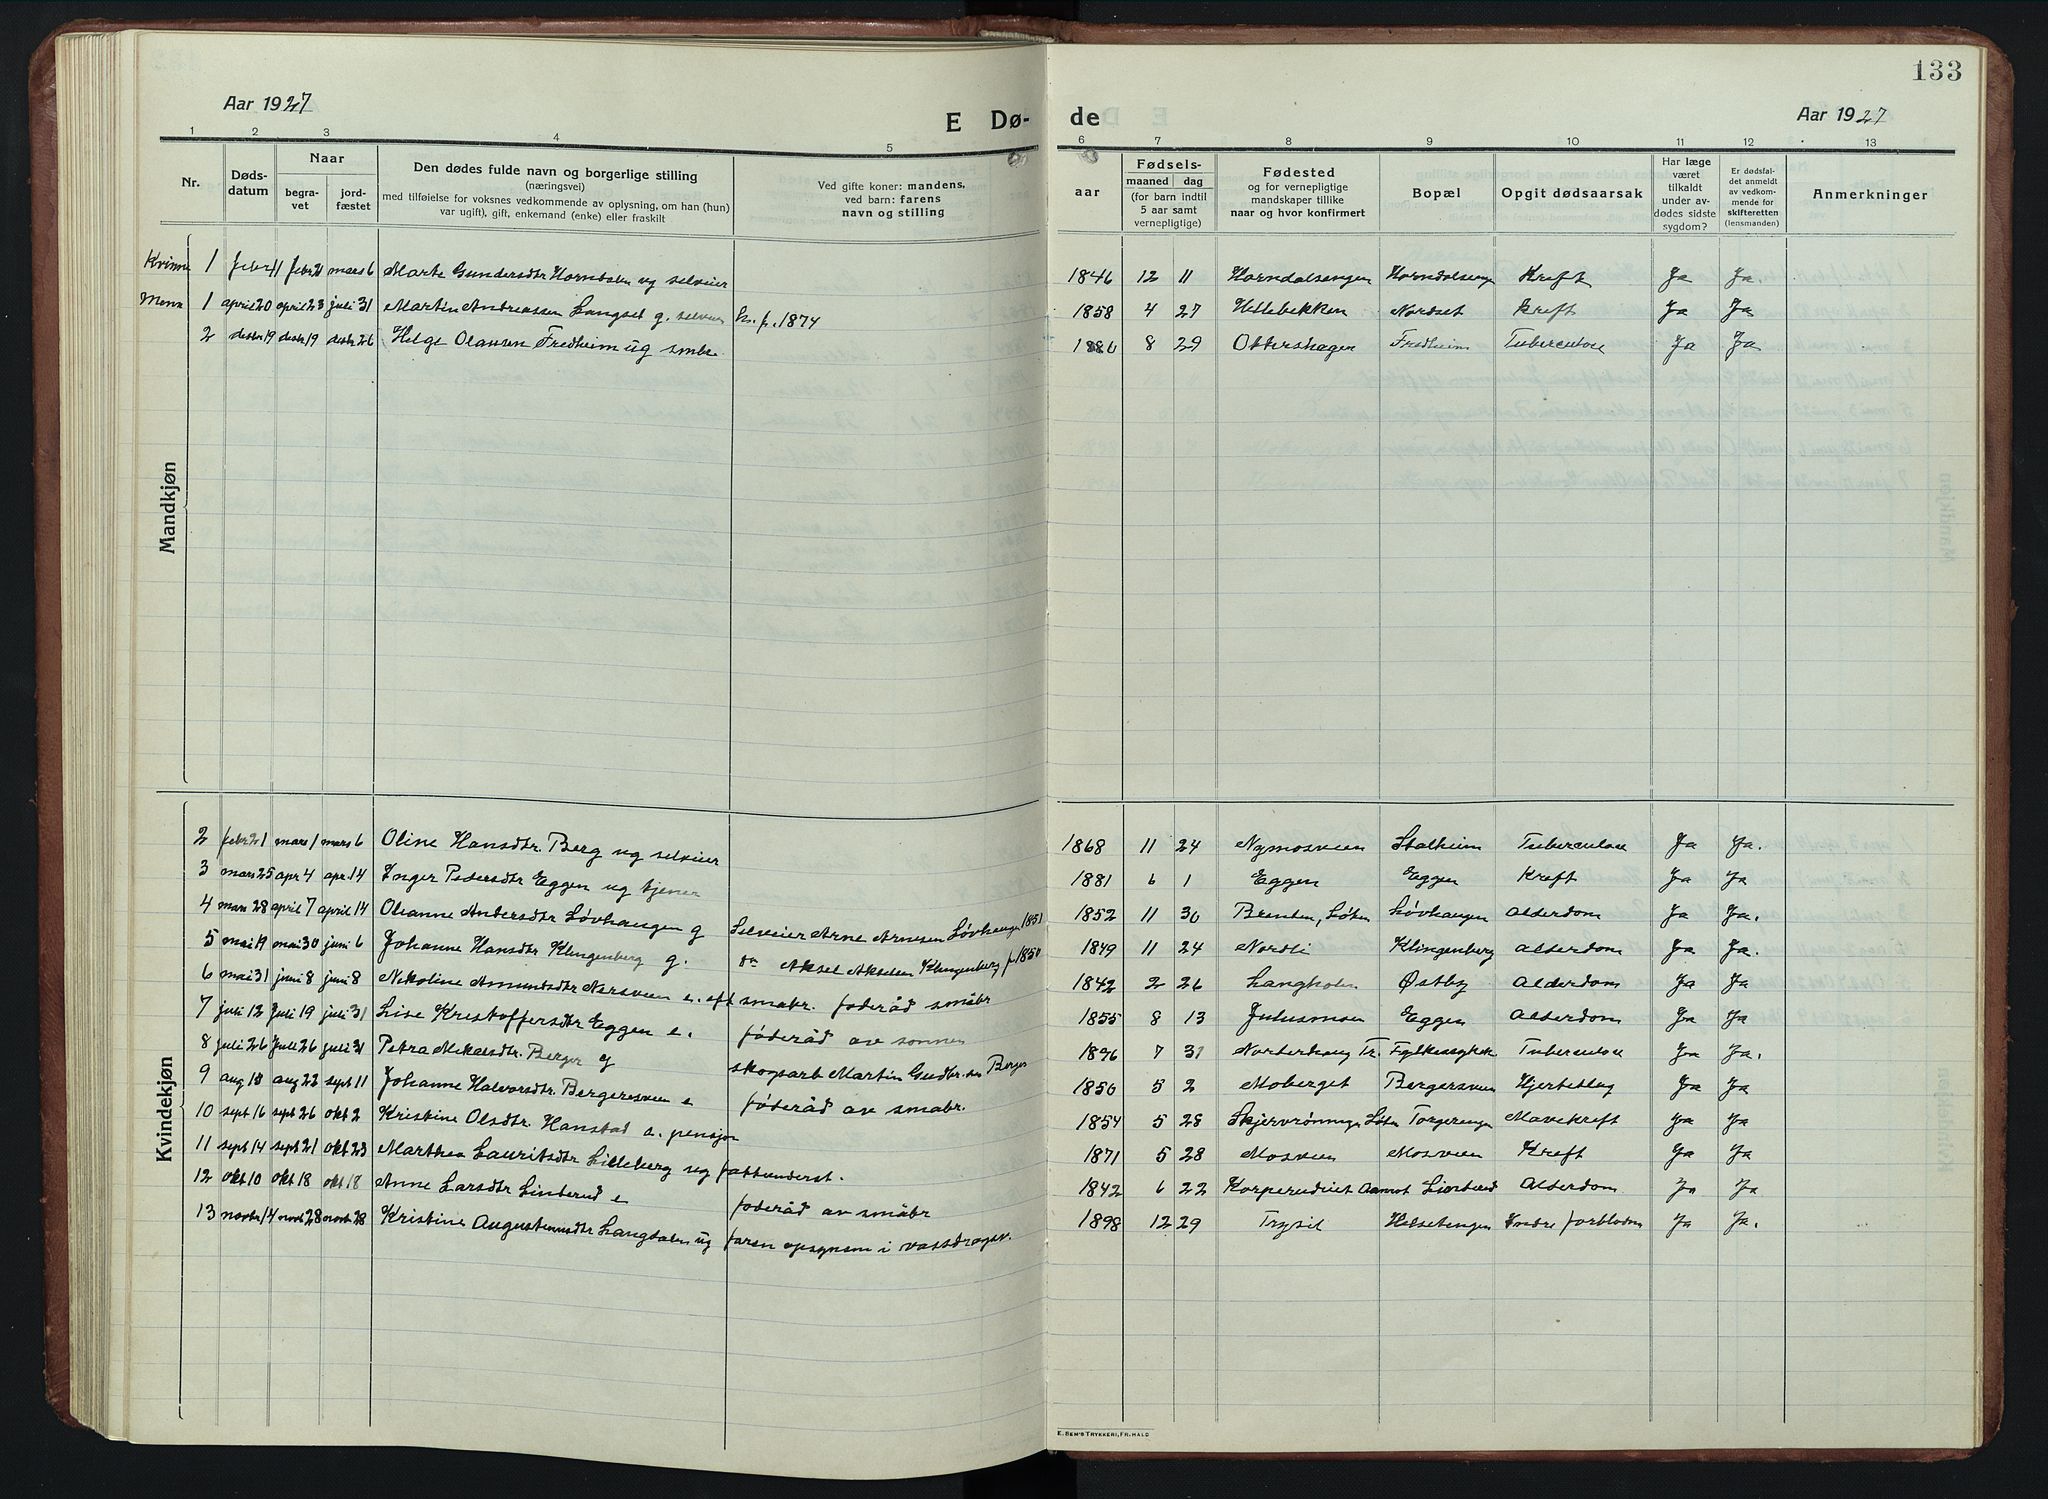 133
Aar 1927
E Dø-
de
Aar 1927
1 2 3 4 5 6 7 8 9 10 11 12 13
Nr.
Døds-
datum
Naar
begra-
vet
jord-
fæstet
Den dødes fulde navn og borgerlige stilling
(næringsvei)
med tilføielse for voksnes vedkommende av oplysning, om han (hun)
var ugift), gift, enkemand (enke) eller fraskilt
Ved gifte koner: mandens,
ved barn: farens
navn og stilling
aar
Fødsels-
maaned dag
(for barn indtil
5 aar samt
vernepligtige)
Fødested
og for vernepligtige
mandskaper tillike
naar og hvor konfirmert
Bopæl
Opgit dødsaarsak
Har læge
været
tilkaldt
under av-
dødes sidste
sygdom?
Er dødsfal-
det anmeldt
av vedkom-
mende for
skifteretten
(lensmanden)
Anmerkninger
Mandkjøn
Kvinne 1 febr 11 febr 21 mars 6 Marte Gundersdtr Horndalen ug selveier 1846 12 11 Horndalsengen Horndalsengen Kreft Ja Ja.
Menn 1 april 20 april 28 juli 31 Martin Andreassen Langset g. selveier 1874 1858 4 27 Hellebekken Nordset Kreft Ja Ja
2 desbr 19 desbr 19 desbr 26 Helge Olausen Fredheim ug smbr. 8 29 Ottershagen Fredheim Tuberculose Ja Ja
Kvindekjøn
2 febr 21 mars 1 mars 6 Oline Hansdtr. Berg ug selveier 1868 11 24 Nymosveen Stalheim Tuberculose Ja Ja.
3 mars 25 apr 4 apr. 14 Inger Pedersdtr Eggen ug tjener 1881 6 1 Eggen Eggen Kreft Ja Ja
4 mars 28 april 7 april 14 Oleanne Andersdtr Løvhaugen g Selveier Arne Arnesen Løvhaugen 1851 1852 11 30 Brenten, Løten Løvhaugen Alderdom Ja Ja.
5 mai 19 mai 30 juni 6 Johanne Hansdtr Klingenberg g. Aksel Akselsen Klingenberg f 1850 1849 11 24 Nordli Klingenberg Alderdom Ja Ja.
6 mai 31 juni 8 juni 8 Nikoline Amundsdtr Nersveen e. eft smabr. foderåd småbr 1842 2 26 Langholen Østby Alderdom Ja Ja
7 juli 12 Juli 19 juli 31 Lise Kristoffersdtr Eggen e. føderåd av sønnen 1855 8 13 Julusmoen Eggen Alderdom Ja Ja
8 juli 26 Juli 26 juli 31 Petra Mikaelsdtr. Berger g skogsarb Martin Gudbrandsen Berger 1896 7 31 Norderhaug Tr. Fylkessykeh Tuberculose Ja Ja.
9 aug 18 aug 22 sept 11 Johanne Halvorsdtr. Bergersveen e føderåd av smabr. 1850 5 2 Moberget Bergersveen Hjerteslag Ja Ja
10 sept 16 sept 26 okt 2 Kristine Olsdtr. Hanstad e. pensjon 1854 5 28 Skjervrønningen Løten Torgerengen Mavekreft Ja Ja
11 sept 14 sept 21 okt 23 Marthea Lauritsdtr Lilleberg ug fattunderst. 1871 5 28 Mosveen Mosveen Kreft Ja Ja
12 okt 10 okt 18 okt 18 Anne Larsdtr Linderud e foderåd av småbr 1842 6 22 Korperudeiet Aamot Linderud Alderdom Ja Ja
13 novbr 14 novbr 28 novbr 28 Kristine Augustinusdtr Langdalen ug faren opsynsm i vassdragsv. 1898 12 29 Trysil Helsetengen Indre forblødn Ja Ja.
E. SEM'S TRYKKERI, FR.HALD